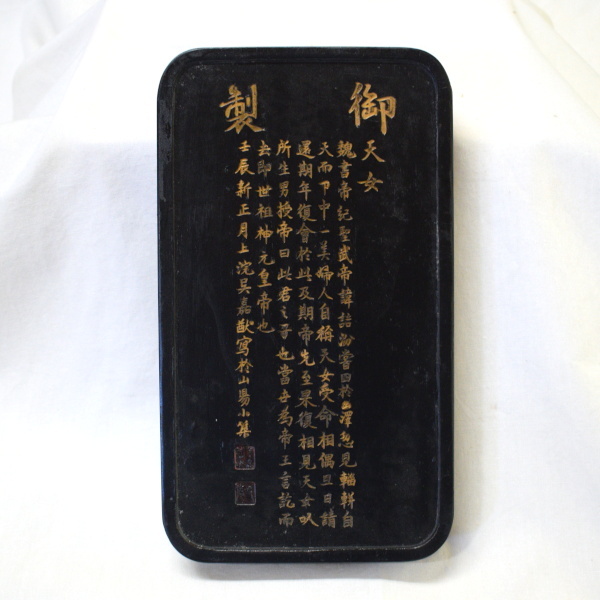 御製
天女
魏書帝紀聖武帝諱詰汾嘗田於山澤忽見輜軿自
天而下中一美婦人自稱天女受命相偶旦日請
還期年復會於此及期帝先至果復相見天女以
所生男授帝曰此君之子也當世為帝王言訖而
去即世祖神元皇帝也
壬辰新正月上浣吳嘉猷寫於山陽小集